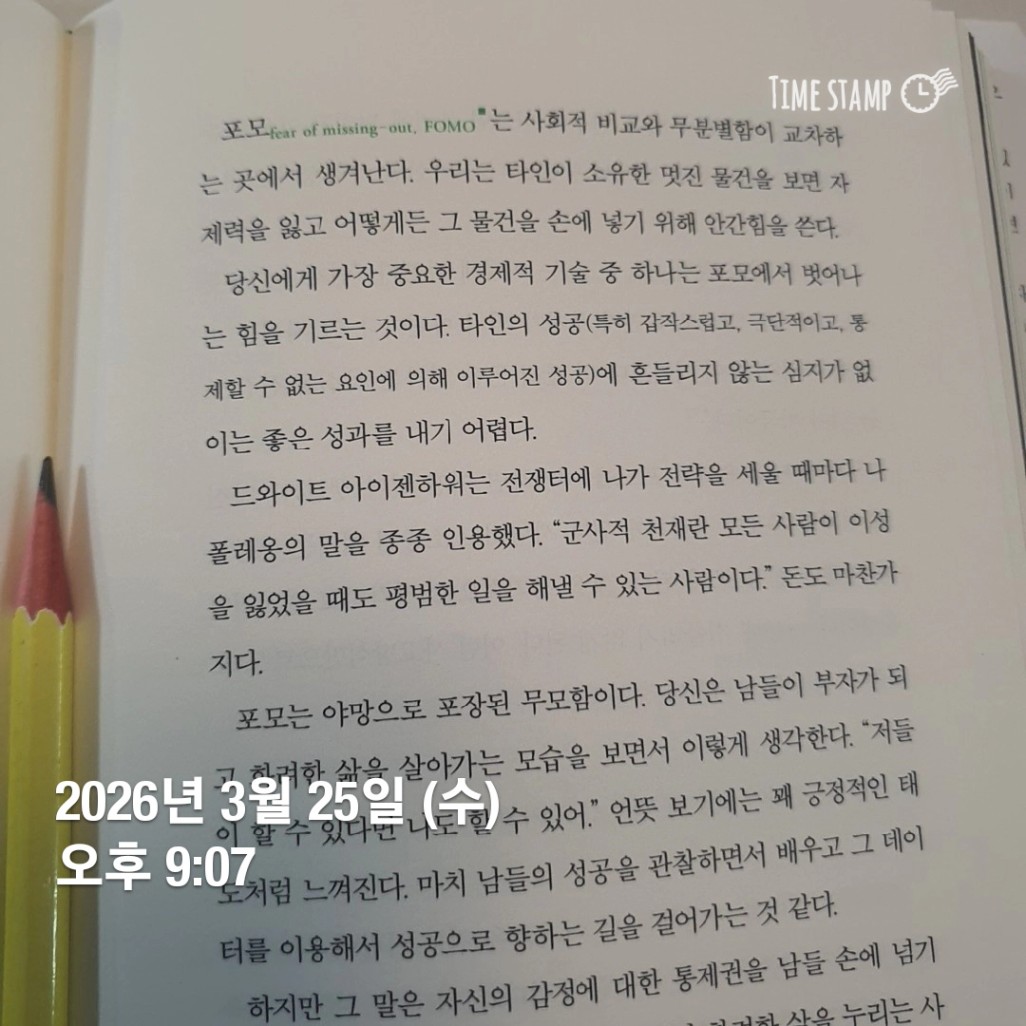 TIME STAMP
포모fear of missing-out, FOMO는 사회적 비교와 무분별함이 교차하
는 곳에서 생겨난다. 우리는 타인이 소유한 멋진 물건을 보면 자
제력을 잃고 어떻게든 그 물건을 손에 넣기 위해 안간힘을 쓴다.
당신에게 가장 중요한 경제적 기술 중 하나는 포모에서 벗어나
는 힘을 기르는 것이다. 타인의 성공(특히 갑작스럽고, 극단적이고, 통
제할 수 없는 요인에 의해 이루어진 성공)에 흔들리지 않는 심지가 없
이는 좋은 성과를 내기 어렵다.
드와이트 아이젠하워는 전쟁터에 나가 전략을 세울 때마다 나
폴레옹의 말을 종종 인용했다. “군사적 천재란 모든 사람이 이성
을 잃었을 때도 평범한 일을 해낼 수 있는 사람이다.” 돈도 마찬가
지다.
포모는 야망으로 포장된 무모함이다. 당신은 남들이 부자가 되
고 화려한 삶을 살아가는 모습을 보면서 이렇게 생각한다. “저들
이 할 수 있다면 나도 할 수 있어.” 언뜻 보기에는 꽤 긍정적인 태
도처럼 느껴진다. 마치 남들의 성공을 관찰하면서 배우고 그 데이
터를 이용해서 성공으로 향하는 길을 걸어가는 것 같다.
하지만 그 말은 자신의 감정에 대한 통제권을 남들 손에 넘기
삶을 누리는 사
2026년 3월 25일 (수)
오후 9:07